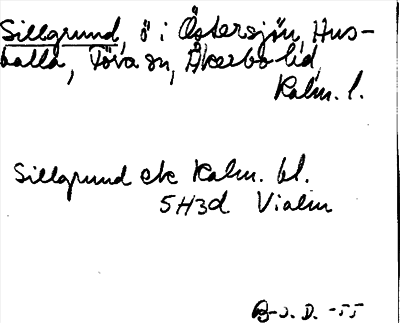 Sillgrund, ö i Östersjön, Hus-
balla, Töva sn, Åkerbo hd,
Kalm. l.
Sillgrund ek Kalm. bl.
5H3d Vialm
B-J. D. -55